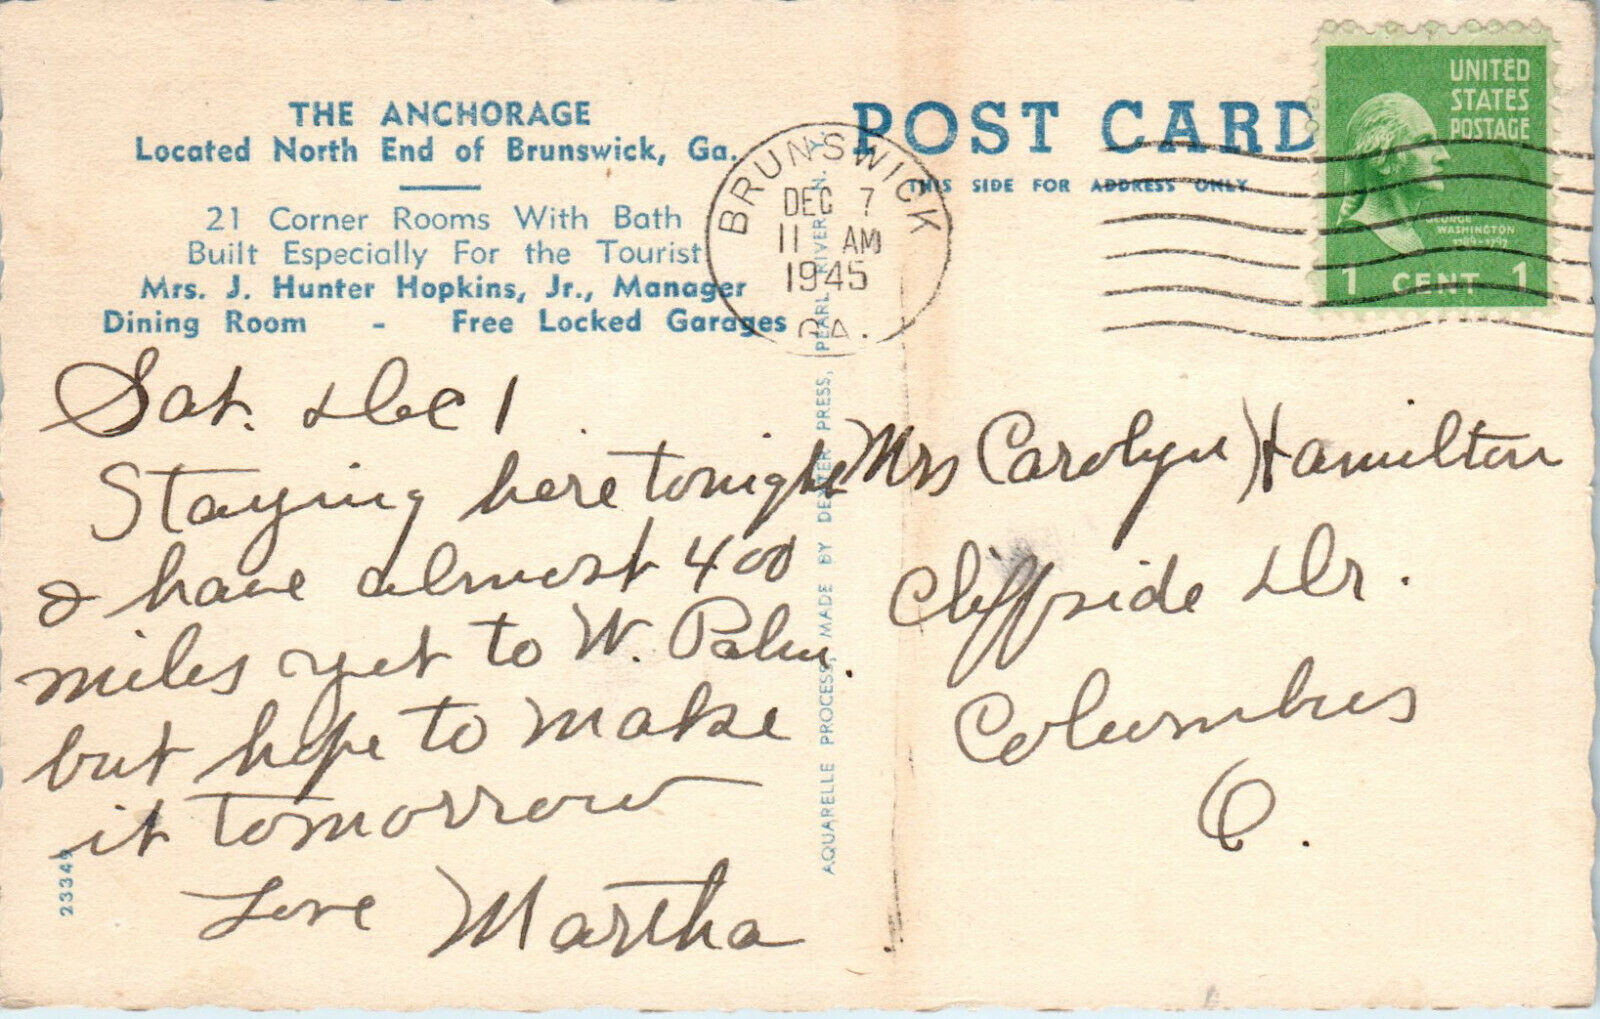 THE ANCHORAGE
Located North End of Brunswick, Ga.
21 Corner Rooms With Bath
Built Especially For the Tourist
Mrs. J. Hunter Hopkins, Jr., Manager
Dining Room - Free Locked Garages
POST CARD
THIS SIDE FOR ADDRESS ONLY
BRUNSWICK
DEC 7
11 AM
1945
GA.
UNITED
STATES
POSTAGE
GEORGE
WASHINGTON
1789-1797
1 CENT 1
Sat. Dec 1
Staying here tonight
& have almost 400
miles yet to W. Palm.
but hope to make
it tomorrow
Love Martha
23349
AQUARELLE PROCESS, MADE BY DEXTER PRESS, PEARL RIVER, N. Y.
Mrs Carolyn Hamilton
Cliffside Dr.
Columbus
O.